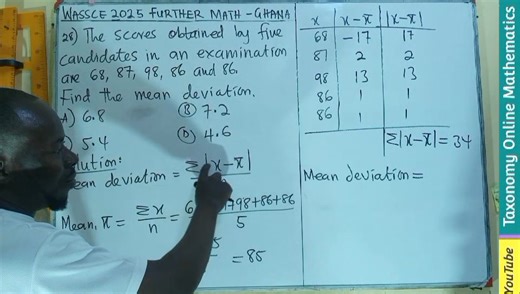 WASSCE 2025 FURTHER MATH - GHANA
28) The scores obtained by five
candidates in an examination
are 68, 87, 98, 86 and 86.
Find the mean deviation.
A) 6.8 B) 7.2
5.4 D) 4.6
Mean deviation = Σ|x-x̄|
Mean, x̄ = Σx/n = 98+86+86/5
= 85
x x-x̄ |x-x̄|
68 -17 17
87 2 2
98 13 13
86 1 1
86 1 1
Σ|x-x̄| = 34
Mean deviation =
YouTube Taxonomy Online Mathematics